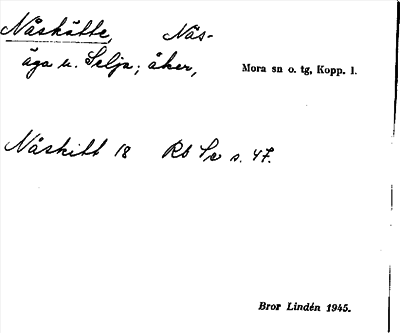 Nåskätte, Nås-
äga u. Selja; åker, Mora sn o. tg, Kopp. l.
Nåskitt 18 Rb Sv s. 47.
Bror Lindén 1945.